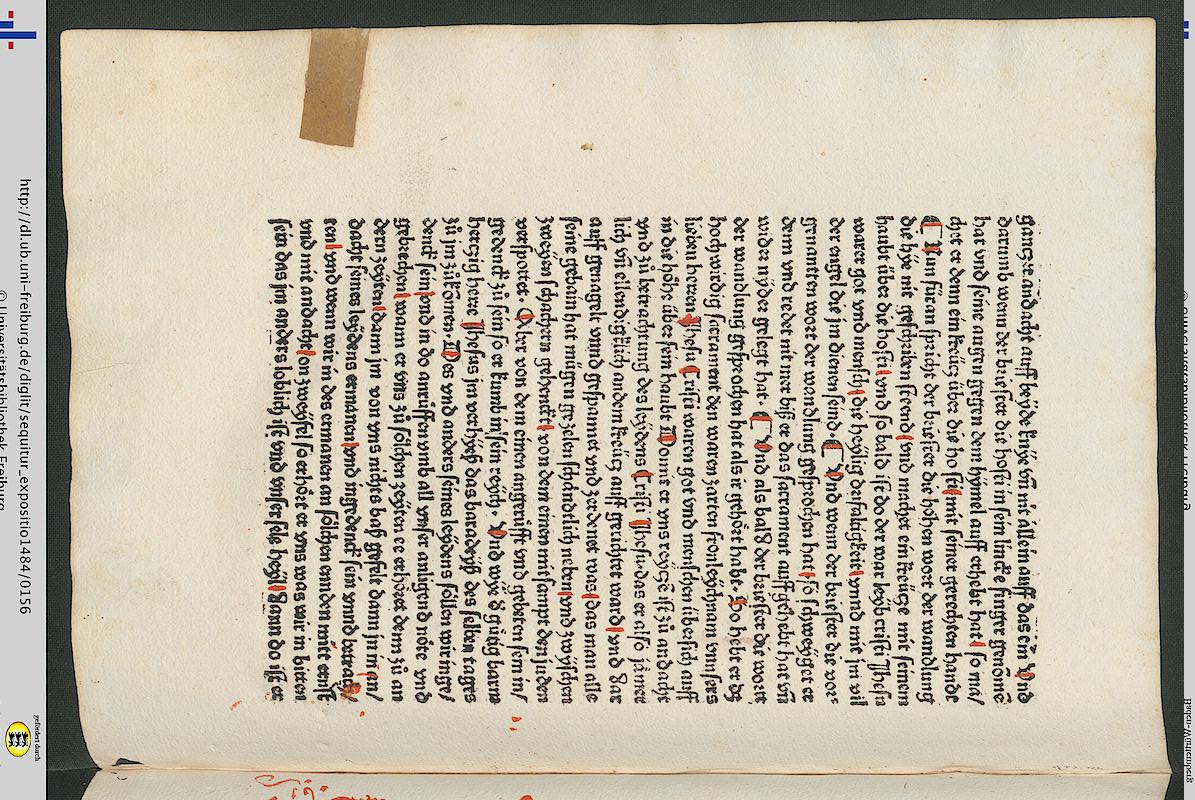 gancze andacht auff beyde knye vñ nit allein auff das ein Vnd
darumb wenn der briester die hosti in sein lincke finger genōme
hat vnd seine augen gegen dem hymel auff erhebt hat so ma/
chet er denn ein kreücz über die hosti mit seiner gerechten hande
Nun füran spricht der briester die höhen wort der wandlung
die hye nit geschriben steend vnd machet ein kreücze mit seinem
haubt über die hosti vnd so bald ist do der war leyb cristi Jhesu
warer got vnd mensch die heylig drifaltigkeit vnnd mit jm vil
der engel die jm dienen seind. Vnd wenn der briester die vor-
genantten wort der wandlung gesprochen hat so schweyget er
denn vnd redet nit mer biß er das sacrament auffgehebt hat vñ
wider nyder gelegt hat. Vnd als bald der briester die worte
der wandlung gesprochen hat als ir gehört habt. So hebt er dz
hochwirdig sacrament den waren zarten fronleychnam vnnsers
lieben herren Jhesu Cristi waren got vnd menschen übersich auff
in die höhe über sein haubt Domit er vns reyczē ist zů andacht
vnd zů betrachtung des leydens Cristi Jhesu das er also jāmer
lich vñ ellendigklich an dem kreücz auff gericht ward vnd dar
auff genagelt vnnd gespannet vnd zerdenet was das man alle
seine gebain hat mügen gezelen schantlich neben vnd zwyschen
zweyen schachern gehenckt von dem einen mitsampt den juden
verspottet. Aber von dem einen angerüfft vnd gebeten sein in/
gedenck zů sein so er kumb in sein reych. Vnd wye d̄ gütig barm
herczig herre Jhesus jm verhyeß das baradeyß des selben tages
zů jm zů komen Des vnd anders seines leydens söllen wir inge/
denck sein vnd in do anrüffen vmb all vnser anligend nöte vnd
gebrechen wann er vns zů sölchen zeyten ee erhöret denn zů an
dern zeyten dann jm von vns nichts baß gefelt dann jn man/
dacht seines leydens ermanen vnd ingedenck sein vnnd betrach
ten vnd wenn wir in des ermanen an sölchen ennden mit ernst
vnd mit andacht on zweyfel so erhört er vns was wir in bitten
sein das jm anders loblich ist vnd vnser sele heyl Dann do ist er
http://dl.ub.uni-freiburg.de/diglit/sequitur_expositio1484/0156
© Universitätsbibliothek Freiburg
gefördert durch